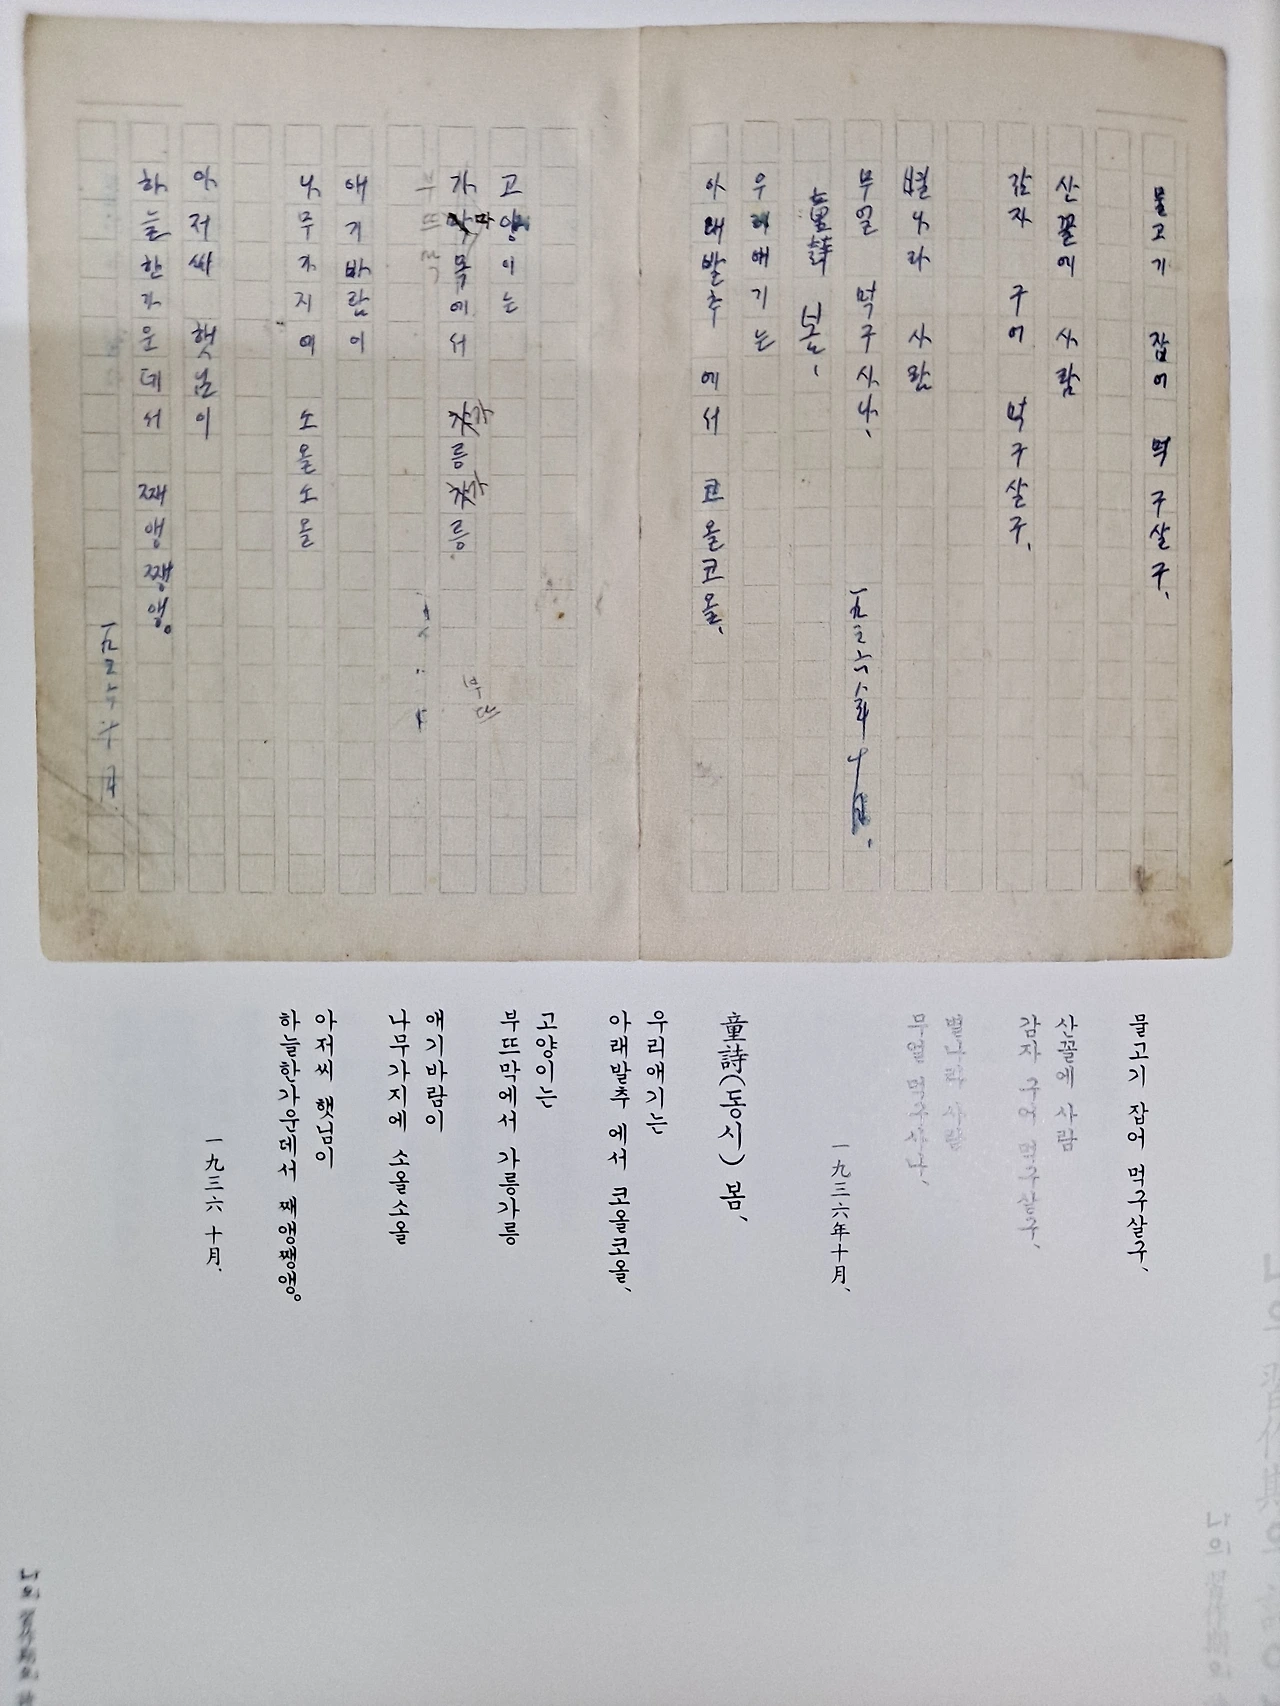 물고기 잡어 먹구살구、
산꼴에 사람
감자 구어 먹구살구、
별나라 사람
무얼 먹구사나、
一九三六年十月、
童詩 봄、
우리애기는
아래발추 에서 코올코올、
고양이는
가막목에서 가릉가릉
부뜨막
부뜨
애기바람이
나무가지에 소올소올
아저씨 햇님이
하늘한가운데서 째앵쨍앵。
一九三六 十月.
물고기 잡어 먹구살구、
산꼴에 사람
감자 구어 먹구살구、
별나라 사람
무얼 먹구사나、
一九三六年十月、
童詩(동시) 봄、
우리애기는
아래발추 에서 코올코올、
고양이는
부뜨막에서 가릉가릉
애기바람이
나무가지에 소올소올
아저씨 햇님이
하늘한가운데서 째앵쨍앵。
一九三六 十月.
나의